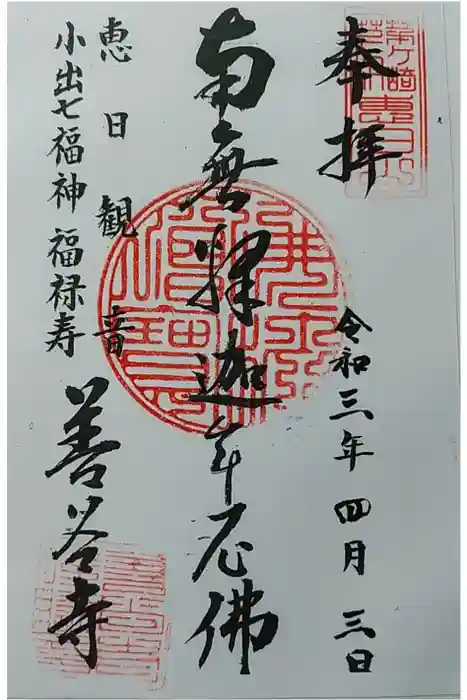 奉拝
令和三年四月三日
南無釋迦牟尼佛
恵日観音
小出七福神 福禄寿
善谷寺